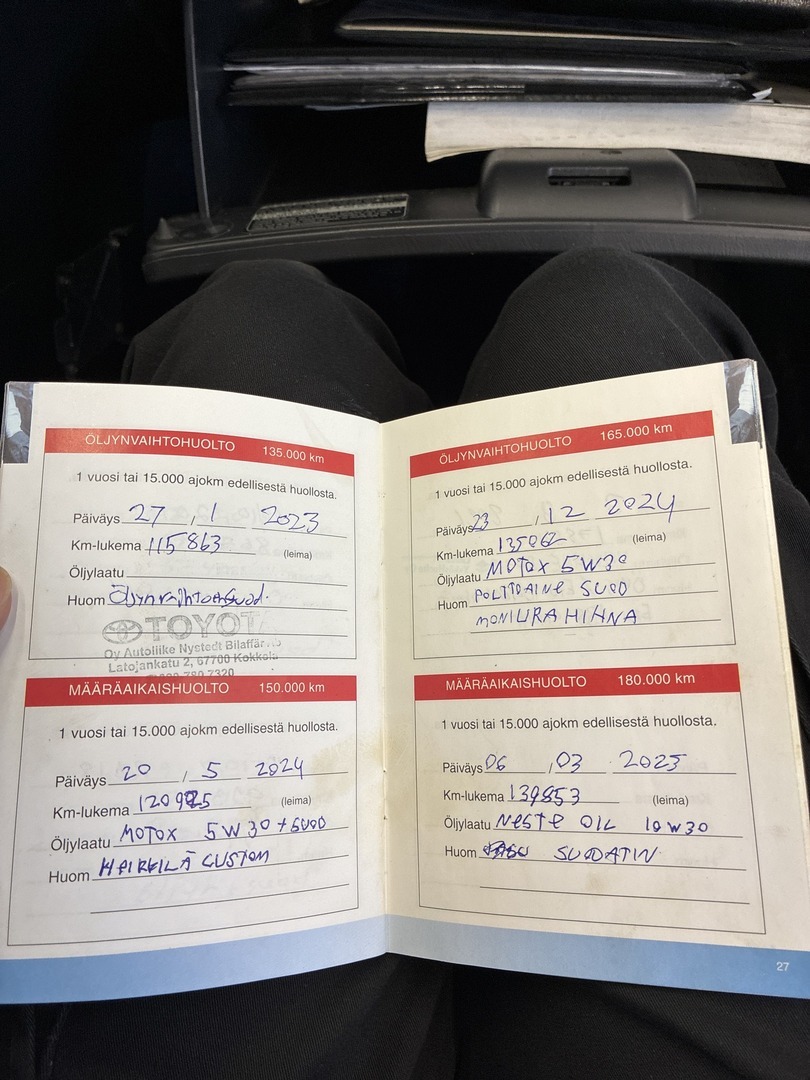 ÖLJYNVAIHTOHUOLTO 135.000 km
1 vuosi tai 15.000 ajokm edellisestä huollosta.
Päiväys 27 , 1 2023
Km-lukema 115 863 (leima)
Öljylaatu
Huom Öljynvaihto+Suod.
TOYOTA
Oy Autoliike Nystedt Bilaffär
Latojankatu 2, 67700 Kokkola
780 7320
MÄÄRÄAIKAISHUOLTO 150.000 km
1 vuosi tai 15.000 ajokm edellisestä huollosta.
Päiväys 20 , 5 2024
Km-lukema (leima)
Öljylaatu MOTOX 5W30 + SUOD
Huom CUSTOM
ÖLJYNVAIHTOHUOLTO 165.000 km
1 vuosi tai 15.000 ajokm edellisestä huollosta.
Päiväys 23 , 12 2024
Km-lukema 135062 (leima)
Öljylaatu MOTOX 5W30
Huom POLTTOAINE SUOD
MONIURAHIHNA
MÄÄRÄAIKAISHUOLTO 180.000 km
1 vuosi tai 15.000 ajokm edellisestä huollosta.
Päiväys 06 , 03 2025
Km-lukema 139853 (leima)
Öljylaatu NESTE OIL 10W30
Huom SUODATIN
27